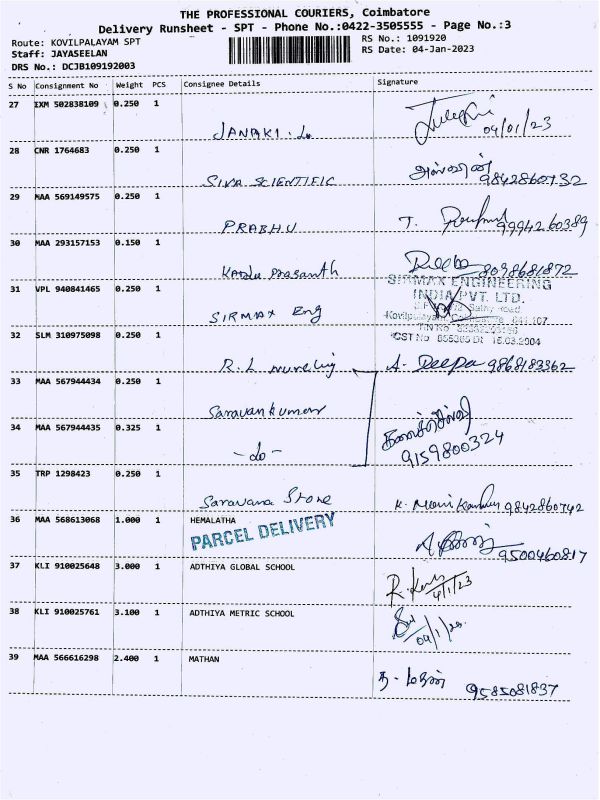 THE PROFESSIONAL COURIERS, Coimbatore
Delivery Runsheet - SPT - Phone No.:0422-3505555 - Page No.:3
Route: KOVILPALAYAM SPT
RS No.: 1091920
Staff: JAYASEELAN
RS Date: 04-Jan-2023
DRS No.: DCJB109192003
S No Consignment No Weight PCS Consignee Details Signature
27 IXM 502838109 0.250 1
JANAKI. 04/01/23
28 CNR 1764683 0.250 1
SIVA SCIENTIFIC 9842860732
29 MAA 569149575 0.250 1
PRABHU T. 9994260389
30 MAA 293157153 0.150 1
Prasanth Deeba 8098681872
31 VPL 940841465 0.250 1
SIRMAX ENGINEERING
INDIA PVT. LTD.
SIRMAX Eng
32 SLM 310975098 0.250 1
CST No 855365 Dt 15.03.2004
R.L A. Deepa 9868183362
33 MAA 567944434 0.250 1
Saravankumar
34 MAA 567944435 0.325 1
- do -
9159800324
35 TRP 1298423 0.250 1
Saravana Stone K. Manikandan 9842860742
36 MAA 568613068 1.000 1 HEMALATHA
PARCEL DELIVERY
9500460817
37 KLI 910025648 3.000 1 ADTHIYA GLOBAL SCHOOL
4/1/23
38 KLI 910025761 3.100 1 ADTHIYA METRIC SCHOOL
04/1/23
39 MAA 566616298 2.400 1 MATHAN
த. மதன் 9585081837